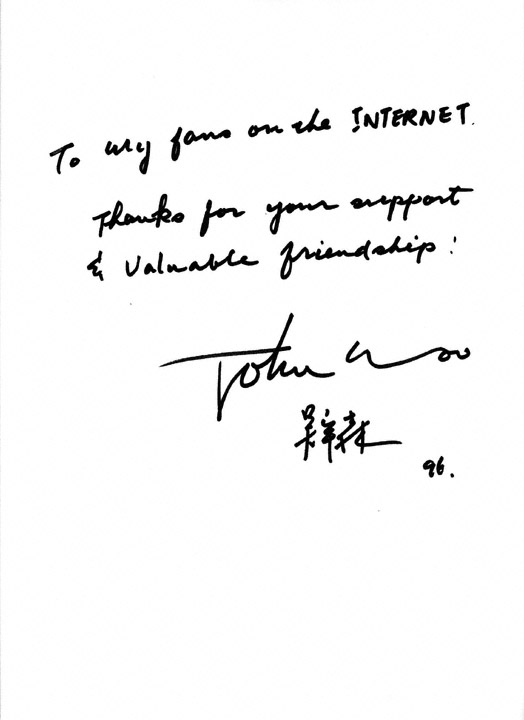 To my fans on the INTERNET.
Thanks for your support
& Valuable friendship!
John Woo
吴宇森
96.